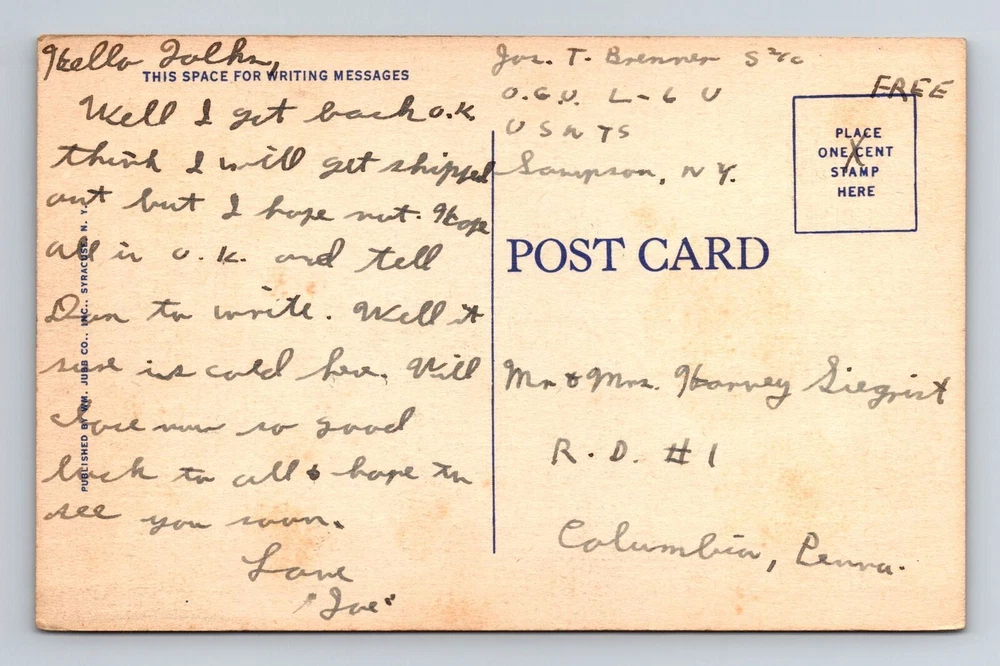 Hello Folks,
THIS SPACE FOR WRITING MESSAGES
Well I got back o.k.
think I will get shipped
out but I hope not. Hope
all is o.k. and tell
Dun to write. Well it
sure is cold here. Will
close now so good
luck to all & hope to
see you soon.
Love
"Joe"
PUBLISHED BY WM. JUBB CO., INC., SYRACUSE, N. Y.
Jos. T. Brenner S 2/c
O.G.U. L-6 U
U S N T S
Sampson, N Y.
FREE
PLACE
ONE CENT
STAMP
HERE
POST CARD
Mr & Mrs. Harvey Siegrist
R. D. #1
Columbia, Penna.